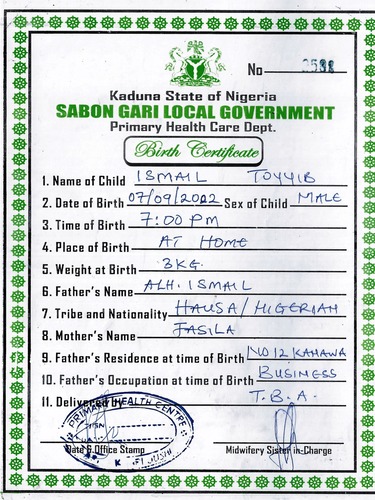 No 0588
Kaduna State of Nigeria
SABON GARI LOCAL GOVERNMENT
Primary Health Care Dept.
Birth Certificate
1. Name of Child ISMAIL TOYYIB
2. Date of Birth 07/09/2002 Sex of Child MALE
3. Time of Birth 7:00 PM
4. Place of Birth AT HOME
5. Weight at Birth 3KG.
6. Father's Name ALH. ISMAIL
7. Tribe and Nationality HAUSA/NIGERIAN
8. Mother's Name FASILA
9. Father's Residence at time of Birth NO 12 KANAWA
10. Father's Occupation at time of Birth BUSINESS
11. Delivered by T.B.A.
PRIMARY HEALTH CENTRE
SIGN
Date & Office Stamp Midwifery Sister in-Charge